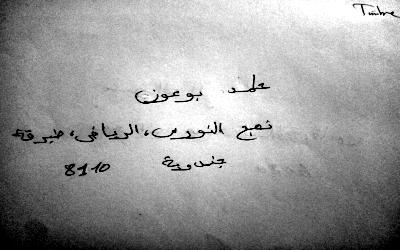 Timbre
محمد بوعون
نهج النورس، الرياض، طبرقة
جندوبة 8110